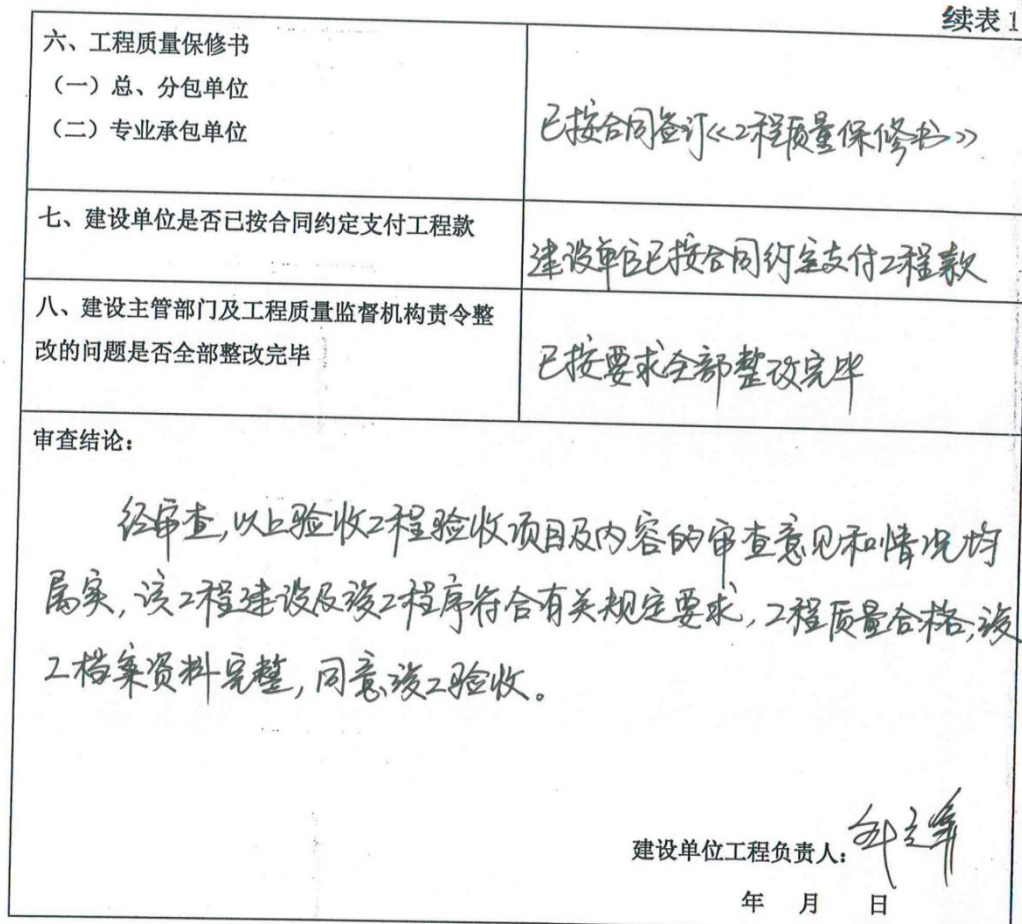 续表1
六、工程质量保修书
（一）总、分包单位
（二）专业承包单位
已按合同签订《工程质量保修书》
七、建设单位是否已按合同约定支付工程款
建设单位已按合同约定支付工程款
八、建设主管部门及工程质量监督机构责令整
改的问题是否全部整改完毕
已按要求全部整改完毕
审查结论：
经审查，以上验收工程验收项目及内容的审查意见和情况均
属实，该工程建设及竣工程序符合有关规定要求，工程质量合格，竣
工档案资料完整，同意竣工验收。
建设单位工程负责人：
年 月 日